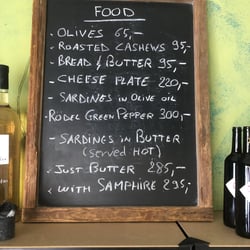 FOOD
- OLIVES 65,-
- ROASTED CASHEWS 95,-
- BREAD & BUTTER 95,-
- CHEESE PLATE 220,-
- SARDINES in OLIVE OIL
- RÖDEL GREEN PEPPER 300,-
- SARDINES in BUTTER
(served HOT)
- JUST BUTTER 285,-
- WITH SAMPHIRE 295,-